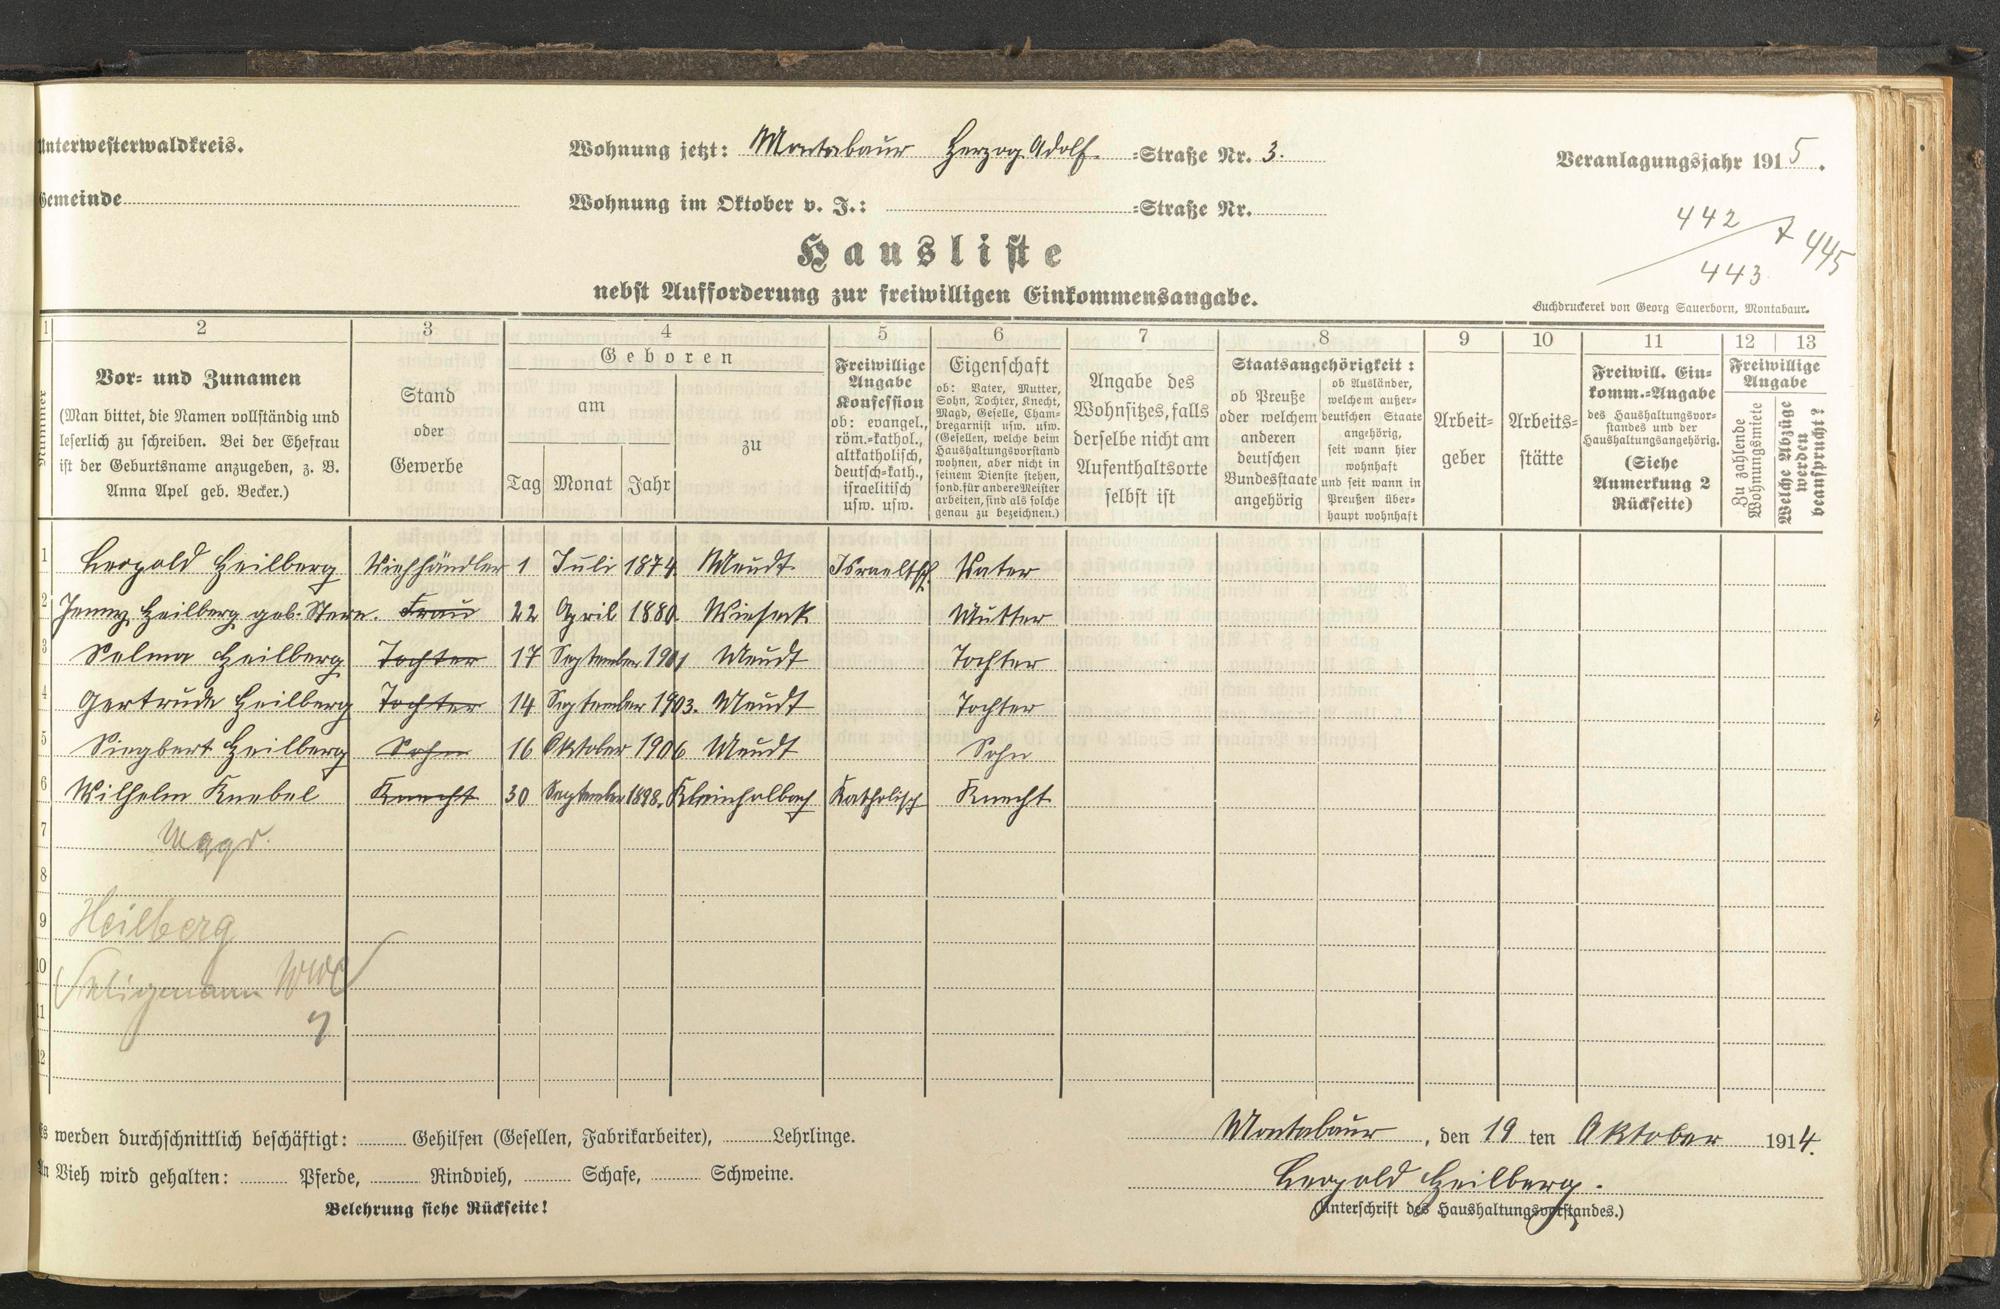 Unterwesterwaldkreis.
Wohnung jetzt: Montabaur Herzog Adolf-Straße Nr. 3.
Veranlagungsjahr 1915.
Gemeinde
Wohnung im Oktober v. J.: -Straße Nr.
442
443
7 445
Hausliste
nebst Aufforderung zur freiwilligen Einkommensangabe.
Buchdruckerei von Georg Sauerborn, Montabaur.
1 2 3 4 5 6 7 8 9 10 11 12 13
Nummer
Vor- und Zunamen
(Man bittet, die Namen vollständig und
leserlich zu schreiben. Bei der Ehefrau
ist der Geburtsname anzugeben, z. B.
Anna Apel geb. Becker.)
Stand
oder
Gewerbe
Geboren
am
Tag Monat Jahr
zu
Freiwillige
Angabe
Konfession
ob: evangel.,
röm.-kathol.,
altkatholisch,
deutsch-kath.,
israelitisch
usw. usw.
Eigenschaft
ob: Vater, Mutter,
Sohn, Tochter, Knecht,
Magd, Geselle, Cham-
bregarnist usw. usw.
(Gesellen, welche beim
Haushaltungsvorstand
wohnen, aber nicht in
seinem Dienste stehen,
sond. für andere Meister
arbeiten, sind als solche
genau zu bezeichnen.)
Angabe des
Wohnsitzes, falls
derselbe nicht am
Aufenthaltsorte
selbst ist
Staatsangehörigkeit:
ob Preuße
oder welchem
anderen
deutschen
Bundesstaate
angehörig
ob Ausländer,
welchem außer-
deutschen Staate
angehörig,
seit wann hier
wohnhaft
und seit wann in
Preußen über-
haupt wohnhaft
Arbeit-
geber
Arbeits-
stätte
Freiwill. Ein-
komm.-Angabe
des Haushaltungsvor-
standes und der
Haushaltungsangehörig.
(Siehe
Anmerkung 2
Rückseite)
Freiwillige
Angabe
Zu zahlende
Wohnungsmiete
Welche Abzüge
werden
beansprucht?
1 Leopold Heilberg Viehhändler 1 Juli 1874 Meudt Israelitsch Vater
2 Jenny Heilberg geb. Stern. Frau 22 April 1880 Wieseck Mutter
3 Selma Heilberg Tochter 17 September 1901 Meudt Tochter
4 Gertrude Heilberg Tochter 14 September 1903. Meudt Tochter
5 Siegbert Heilberg Sohn 16 Oktober 1906 Meudt Sohn
6 Wilhelm Knebel Knecht 30 September 1898. Kleinholbach Katholisch Knecht
7
8
9 Heilberg
10 Seligmann Wwe
11
12
Es werden durchschnittlich beschäftigt: Gehilfen (Gesellen, Fabrikarbeiter), Lehrlinge.
An Vieh wird gehalten: Pferde, Rindvieh, Schafe, Schweine.
Belehrung siehe Rückseite!
Montabaur, den 19 ten Oktober 1914.
Leopold Heilberg.
(Unterschrift des Haushaltungsvorstandes.)